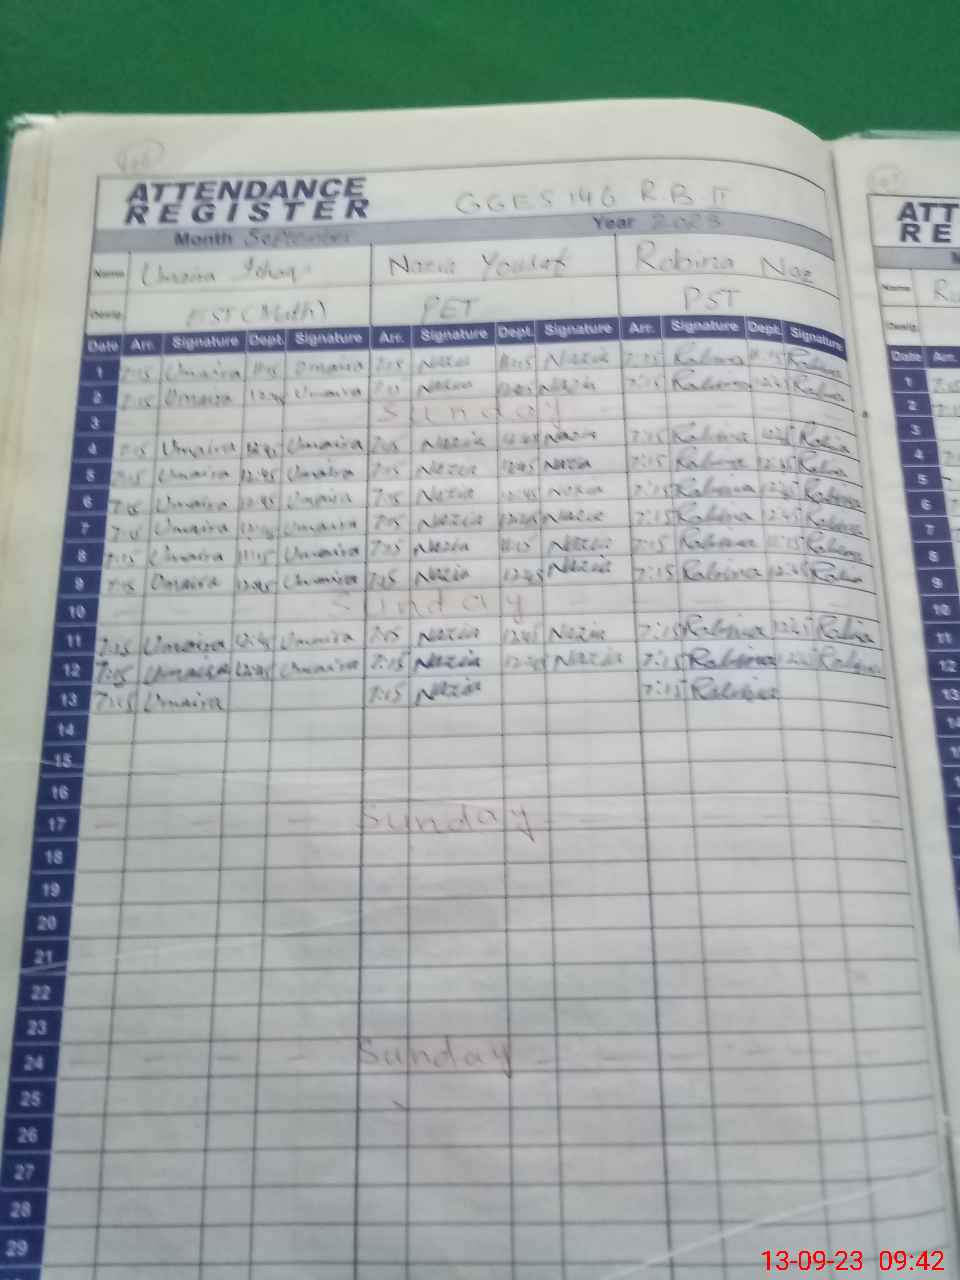 ATTENDANCE
REGISTER GGES 146 R.B II
Month September Year 2023
Name Umaira Ishaq Nazia Yousaf Robina Naz
Desig. EST (Math) PET PST
Date Arr. Signature Dept. Signature Arr. Signature Dept. Signature Arr. Signature Dept. Signature
1 7:15 Umaira 11:15 Umaira 7:15 Nazia 11:15 Nazia 7:15 Robina 11:15 Robina
2 7:15 Umaira 12:45 Umaira 7:15 Nazia 12:45 Nazia 7:15 Robina 12:45 Robina
3 Sunday
4 7:15 Umaira 12:45 Umaira 7:15 Nazia 12:45 Nazia 7:15 Robina 12:45 Robina
5 7:15 Umaira 12:45 Umaira 7:15 Nazia 12:45 Nazia 7:15 Robina 12:45 Robina
6 7:15 Umaira 12:45 Umaira 7:15 Nazia 12:45 Nazia 7:15 Robina 12:45 Robina
7 7:15 Umaira 12:45 Umaira 7:15 Nazia 12:45 Nazia 7:15 Robina 12:45 Robina
8 7:15 Umaira 11:15 Umaira 7:15 Nazia 11:15 Nazia 7:15 Robina 11:15 Robina
9 7:15 Umaira 12:45 Umaira 7:15 Nazia 12:45 Nazia 7:15 Robina 12:45 Robina
10 Sunday
11 7:15 Umaira 12:45 Umaira 7:15 Nazia 12:45 Nazia 7:15 Robina 12:45 Robina
12 7:15 Umaira 12:45 Umaira 7:15 Nazia 12:45 Nazia 7:15 Robina 12:45 Robina
13 7:15 Umaira 7:15 Nazia 7:15 Robina
14
15
16
17 Sunday
18
19
20
21
22
23
24 Sunday
25
26
27
28
29
ATT
RE
Name
Desig.
Date Arr.
1
2
3
4
5
6
7
8
9
10
11
12
13
14
13-09-23 09:42